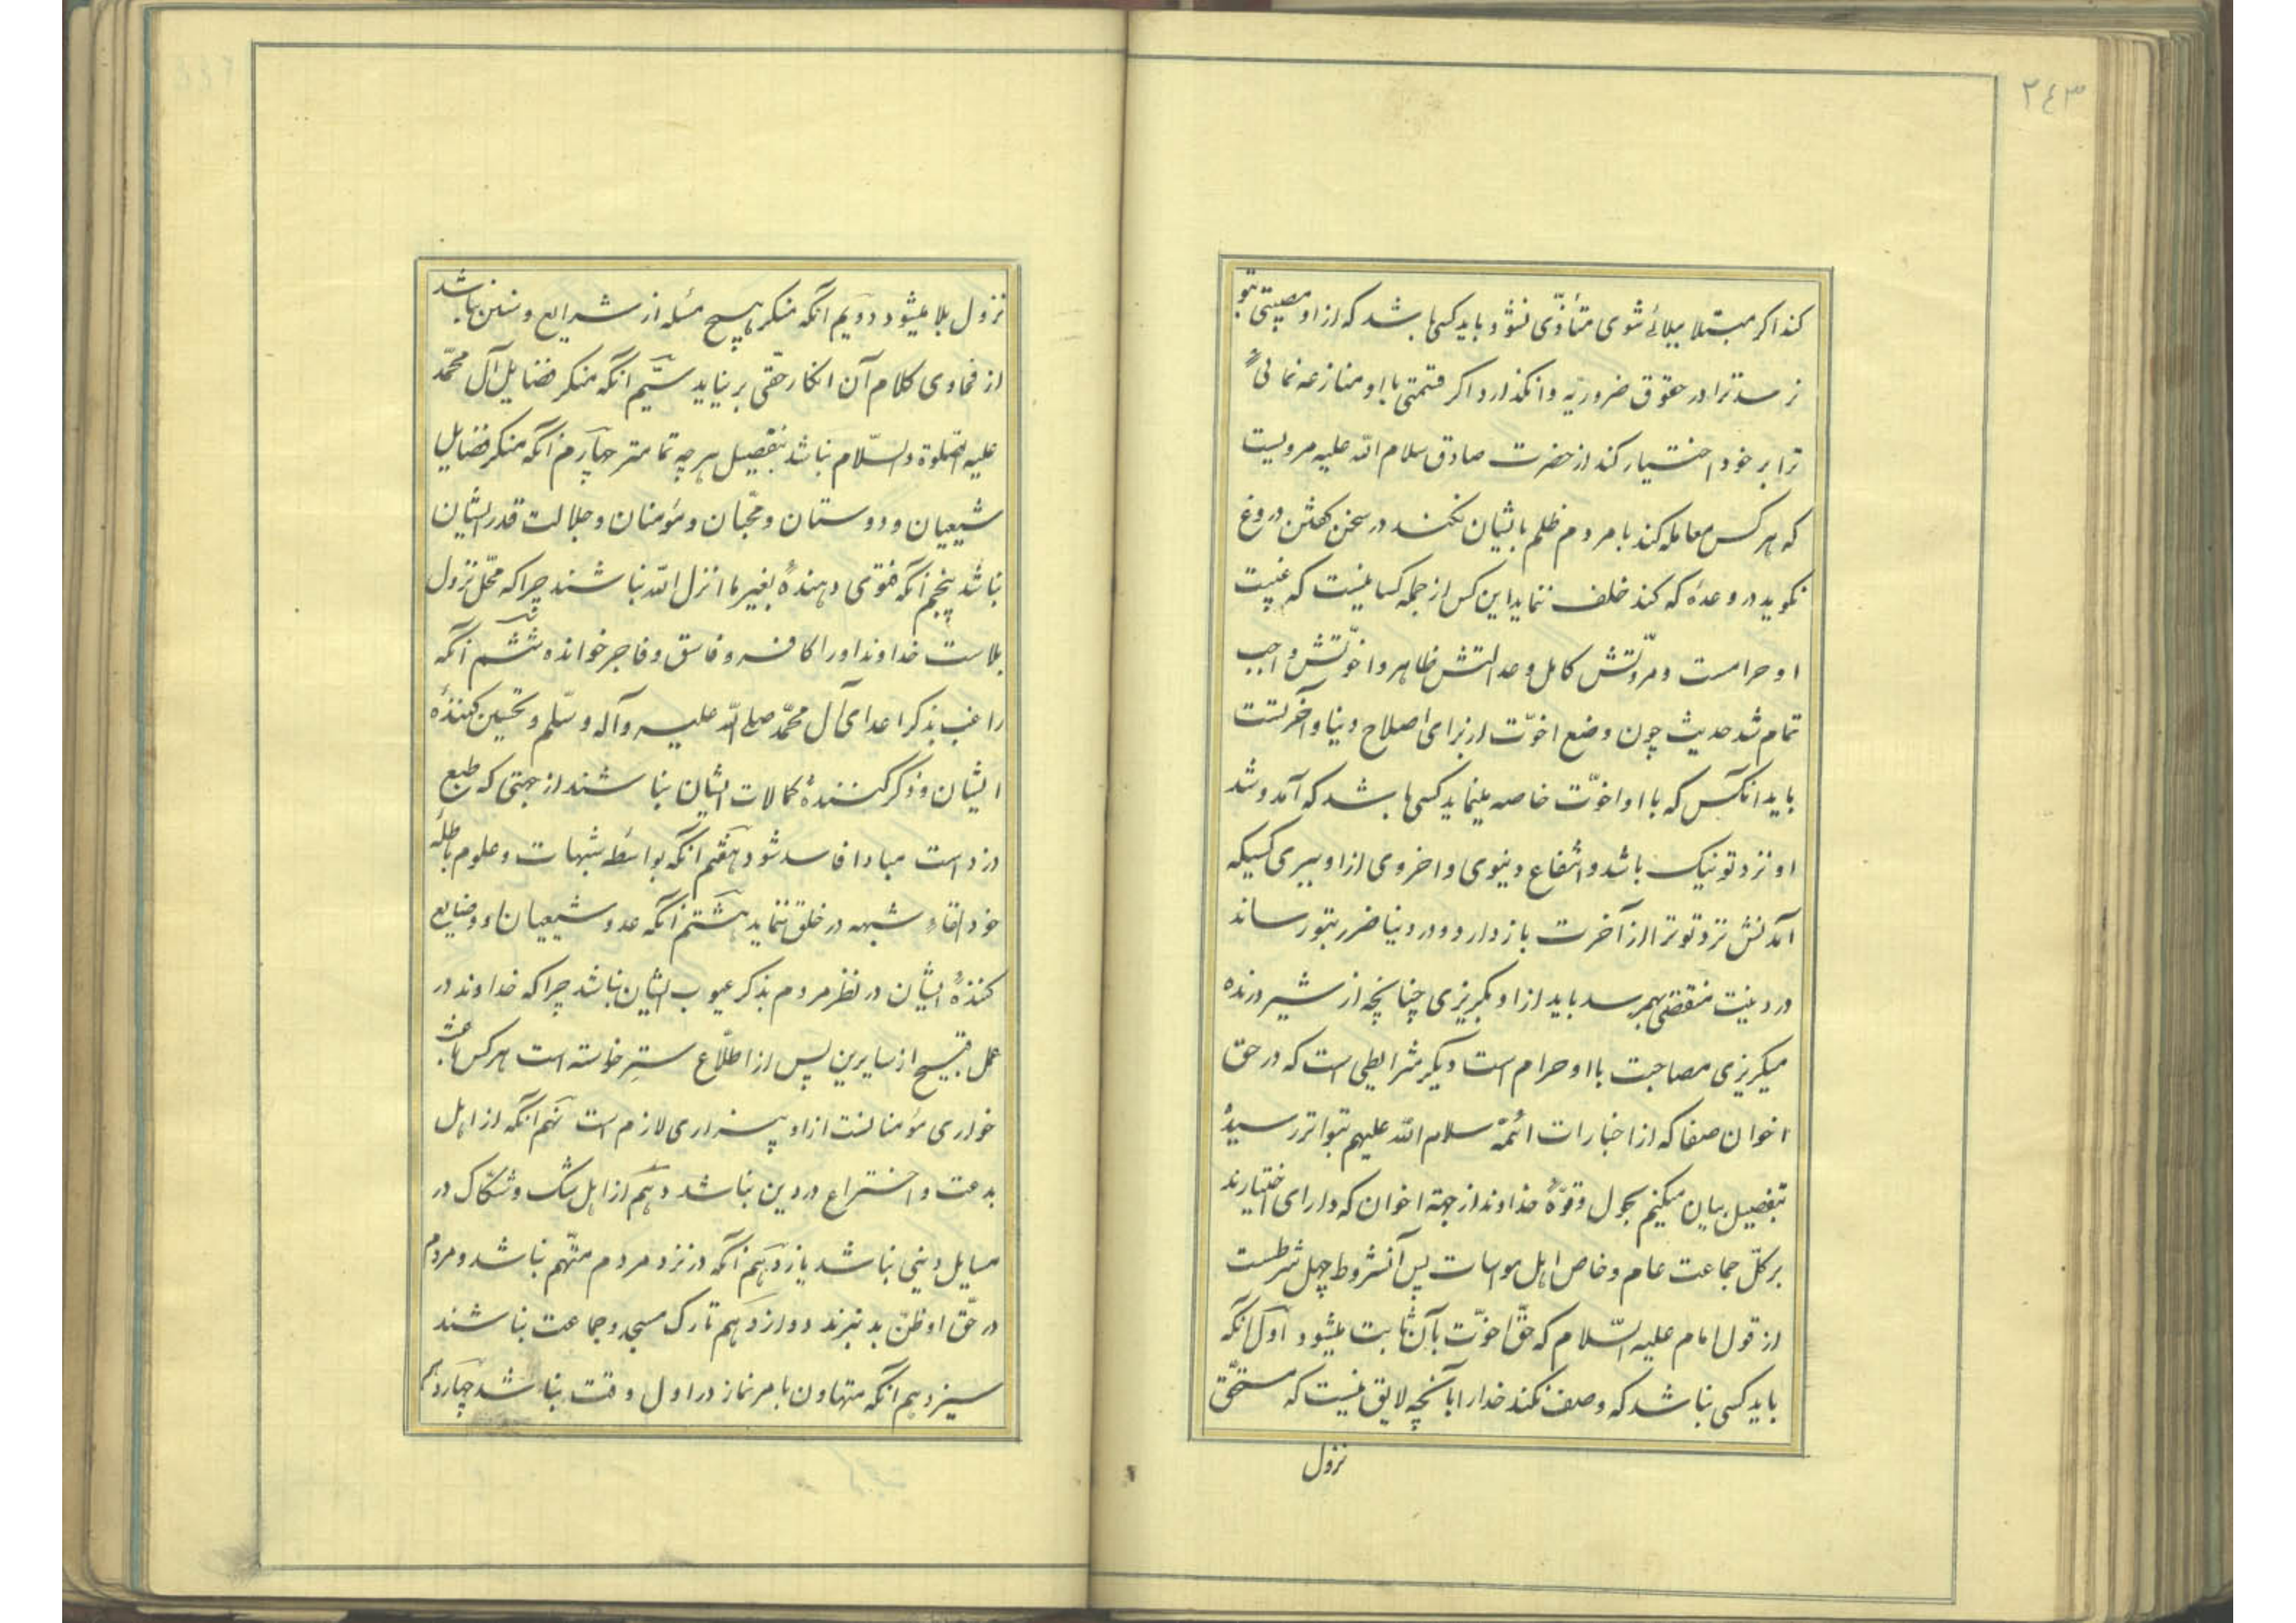 ۲٤۳
کند اکر مبتلا ببلائے شوی متأذّی نشود باید کسی باشد که از او مصیبتی بتو
نرسد ترا در حقوق ضروریّه وانگذارد اکر قسمتی با او منازعه نمائی
ترا بر خود اختیار کند از حضرت صادق سلام الله علیه مرویست
که هر کس معامله کند با مردم ظلم بایشان نکند در سخن کفتن دروغ
نکوید در وعدهٔ که کند خلف ننماید این کس از جمله کسانیست که غیبت
او حرامست و مروّتش کامل و عدالتش ظاهر و اخوّتش واجب
تمام شد حدیث چون وضع اخوّت از برای اصلاح دنیا و آخرتست
باید انکس که با او اخوّت خاصه مینماید کسی باشد که آمد و شد
او نزد تو نیک باشد و انتفاع دنیوی و اخروی از او ببری کسیکه
آمدنش نزد تو ترا از آخرت باز دارد و در دنیا ضرر بتو رساند
در دینت منقضتی بهمرسد باید از او بکریزی چنانچه از شیر درنده
میکریزی مصاحبت با او حرام است دیکر شرایطی است که در حق
اخوان صفا که از اخبارات ائمّهٔ سلام الله علیهم بتواتر رسیدهٔ
بتفصیل بیان میکنیم بحول و قوّهٔ خداوند از جهة اخوان که دارای اختیارند
بر کلّ جماعت عام و خاص اهل مواسات پس آنشروط چهل شرطست
از قول امام علیه السّلام که حقّ اخوّت بآن ثابت میشود اوّل انکه
باید کسی نباشد که وصف نکند خدا را بآنچه لایق نیست که مستحق
نزول
نزول بلا میشود دویم انکه منکر هیچ مسئله از شرایع و سنن نباشد
از فحاوی کلام آن انکار حقّی بر نیاید سیّم انکه منکر فضایل آل محمّد
علیه الصّلوة والسّلام نباشد بتفصیل هر چه تمامتر چهارم انکه منکر فضایل
شیعیان و دوستان و محبّان و مؤمنان و جلالت قدر ایشان
نباشد پنجم آنکه فتوی دهندهٔ بغیر ما انزل الله نباشند چرا که محّل نزول
بلاست خداوند او را کافر و فاسق و فاجر خوانده ششم آنکه
راغب بذکر اعدای آل محمّد صلے الله علیه وآله وسّلم و تحسین کنندهٔ
ایشان و ذکر کنندهٔ کمالات ایشان نباشند از جهتی که طبع
دزد است مبادا فاسد شود هفتم آنکه بواسطه شبهات و علوم باطله
خود القاء شبهه در خلق ننماید هشتم آنکه عدو شیعیان و ضایع
کنندهٔ ایشان در نظر مردم بذکر عیوب ایشان نباشد چرا که خداوند در
عمل قبیح از سایرین پس از اطّلاع ستر خواسته است هر کس باعث
خواری مؤمنانست از او بیزاری لازم است نهم آنکه از اهل
بدعت و اختراع در دین نباشد دهم از اهل شک و شکّاک در
مسایل دینی نباشد یازدهم آنکه در نزد مردم متّهم نباشد و مردم
در حّق او ظنّ بد نبرند دوازدهم تارک مسجد و جماعت نباشند
سیزدهم انکه متهاون بامر نماز در اول وقت نباشد چهاردهم